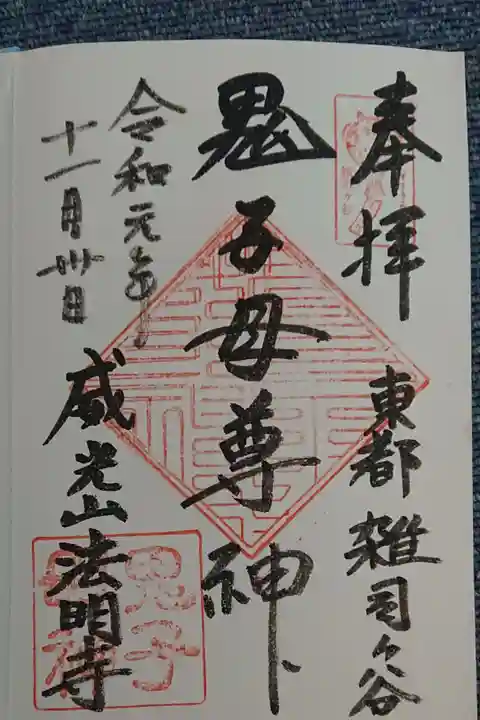 奉拝
東都雑司ヶ谷
鬼子母尊神
令和元年
十一月卅日
威光山法明寺